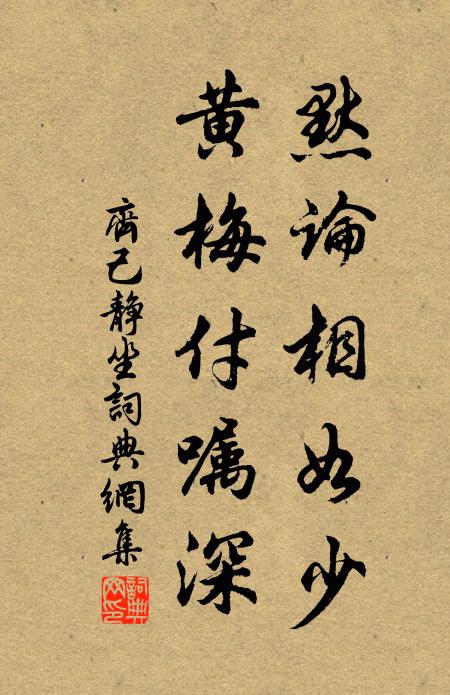 默论相如少
黄梅付嘱深
齊己静坐詞典網集
詞典网印